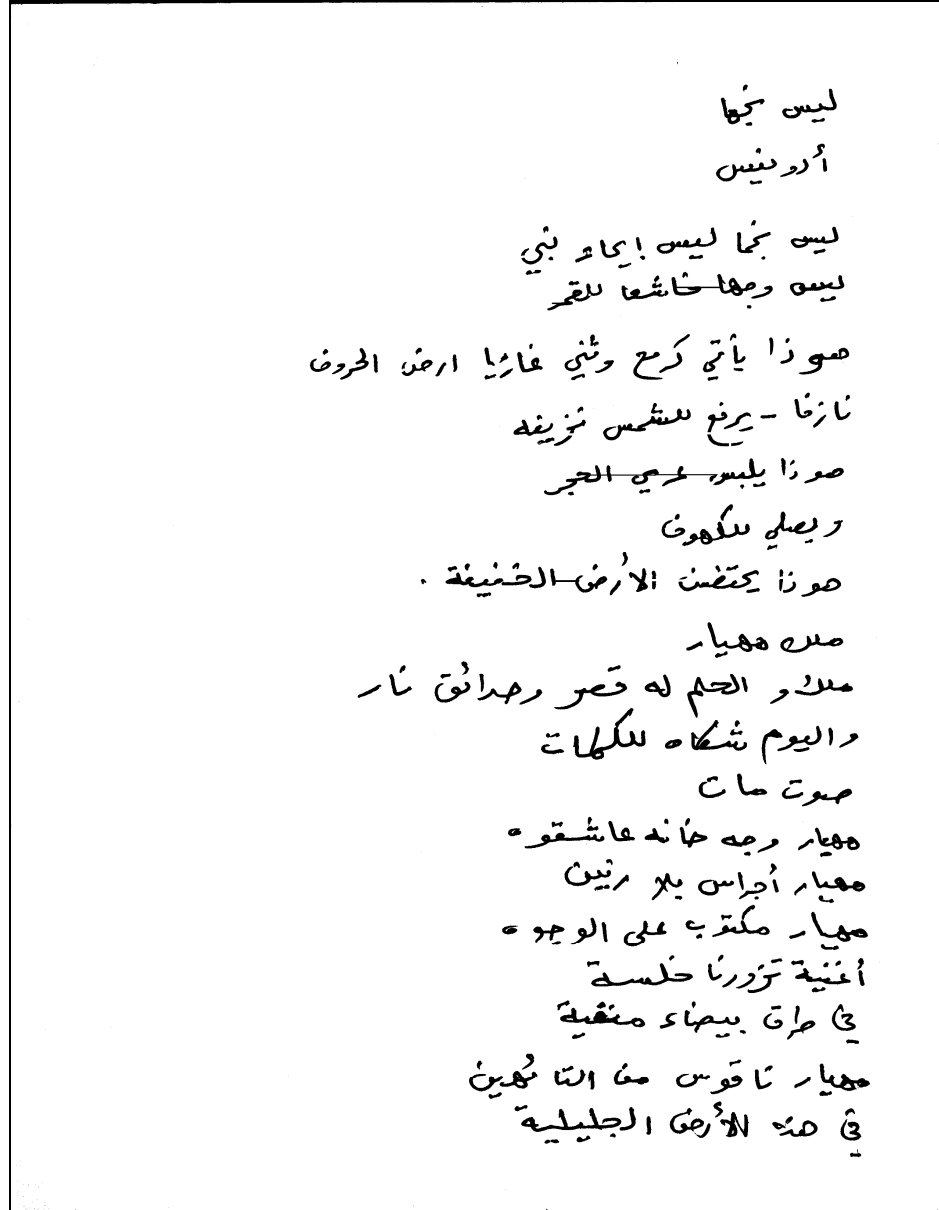 ليس نجما
أدونيس
ليس نجما ليس إيحاء نبي
ليس وجها خاشعا للقمر
هو ذا يأتي كرمح وثني غازيا ارض الحروف
نازفا - يرفع للشمس نزيفه
هو ذا يلبس عري الحجر
و يصلي للكهوف
هو ذا يحتضن الأرض الخفيفة .
ملك مهيار
ملك و الحلم له قصر وحدائق نار
و اليوم شكاه للكلمات
صوت مات
مهيار وجه خانه عاشقوه
مهيار أجراس بلا رنين
مهيار مكتوب على الوجوه
أغنية تزورنا خلسة
في طرق بيضاء منفية
مهيار ناقوس من التائهين
في هذه الأرض الجليلية